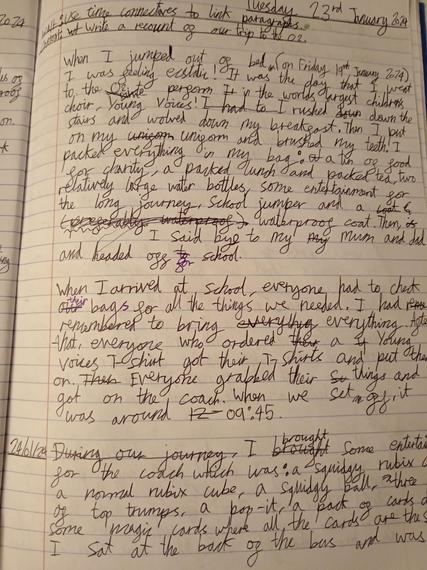 Tuesday 23rd January 2024
Use time connectives to link paragraphs.
Write a recount of our trip to the O2.
When I jumped out of bed (on Friday 19th January 2024)
I was feeling ecstatic! It was the day that I went
to the perform in the worlds largest childrens
choir, Young Voices! I had to I rushed down the
stairs and wolved down my breakfast. Then, I put
on my unigorm and brushed my teeth. I
packed everything in my bag: a tin of good
for charity, a packed lunch and packed tea, two
relatively large water bottles, some entertainment for
the long journey, School jumper and a
waterproof coat. Then,
I said bye to my mum and dad
and headed off to for school.
When I arrived at school, everyone had to check
their bags for all the things we needed. I had
remembered to bring everything everything. After
that, everyone who ordered a Young
Voices T-shirt got their T-Shirts and put them
on. Then Everyone grabbed their things and
got on the coach. When we set off, it
was around 12 09:45.
24/01/24 During our journey, I brought some
for the coach which was: a Squidgy rubix
a normal rubix cube, a Squidgy ball, three
of top trumps, a pop-it, a pack of cards
some magic cards where all the cards are the
I sat at the back of the bus and was